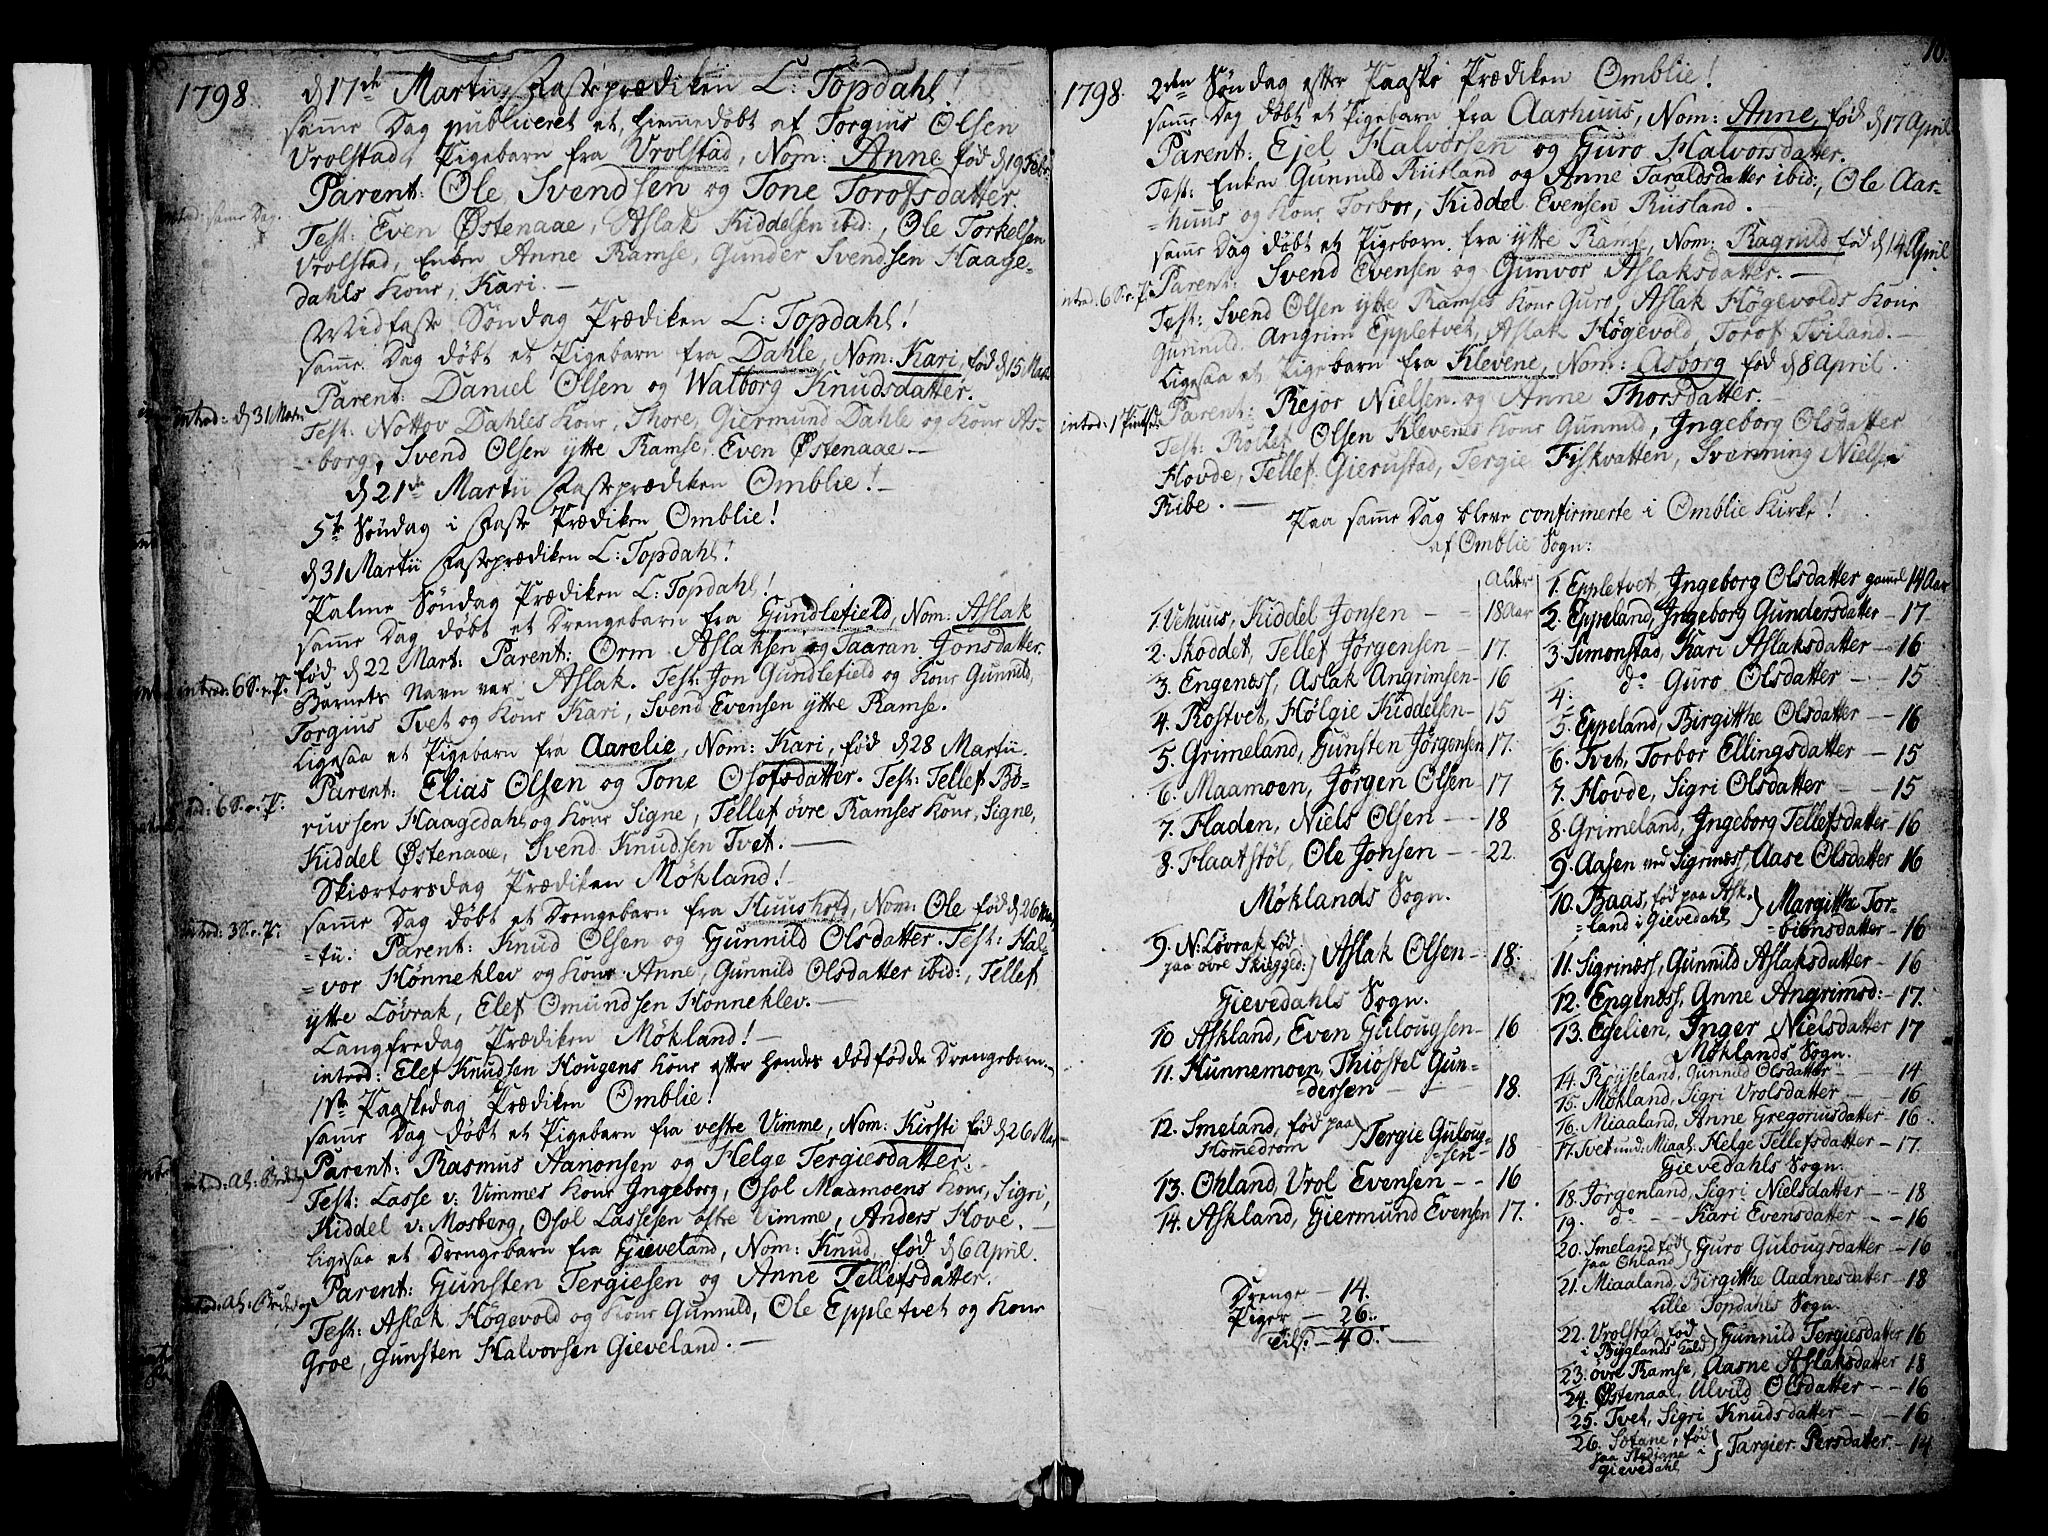 1798
d 17de Martii, Fasteprædiken L: Topdahl!
samme Dag publiceret et hiemmedøbt af Torgius Olsen
Vrolstad, Pigebarn fra Vrolstad, Nom: Anne, fød d 19 Febr:
Parent: Ole Svendsen og Tone Torofsdatter.
introd: samme Dag.
Test: Even Østenaae, Aslak Kiddelsen ibid:, Ole Torkelsen
Vrolstad, Enken Anne Ramse, Gunder Svendsen Haage-
dahls Kone, Kari. —
Midfaste Søndag Prædiken L: Topdahl!
samme Dag døbt et Pigebarn fra Dahle, Nom: Kari, fød d 15 Mart:
Parent: Daniel Olsen og Walborg Knudsdatter.
introd: d 31 Marti
Test: Nottov Dahles Kone, Thore, Giermund Dahle og Kone As-
borg, Svend Olsen ytte Ramse, Even Østenaae. —
d 21de Martii Fasteprædiken Omblie! —
5te Søndag i Faste Prædiken Omblie!
d 31 Martii Fasteprædiken L: Topdahl!
Palme Søndag Prædiken L: Topdahl!
samme Dag døbt et Drengebarn fra Gundlefield, Nom: Aslak
fød d 22 Mart: Parent: Orm Aslaksen og Taaran Jonsdatter.
introd: 6 S. e. P.
Barnets Navn var Aslak. Test: Jon Gundlefield og Kone Gunnild,
Torgius Tvet og Kone Kari, Svend Evensen ytte Ramse.
Ligesaa et Pigebarn fra Aarelie, Nom: Kari, fød d 28 Martii.
introd: 6 S. e. P:
Parent: Elias Olsen og Tone Osofsdatter. Test: Tellef Bø-
ruvsen Haagedahl og Kone Signe, Tellef øvre Ramses Kone, Signe,
Kiddel Østenaae, Svend Knudsen Tvet. —
Skiærtorsdag Prædiken Møkland!
samme Dag døbt et Drengebarn fra Huushold, Nom: Ole fød d 26 Mar-
introd: 3 S. e. P:
=tii: Parent: Knud Olsen og Gunnild Olsdatter. Test: Hal-
=vor Hønneklev og Kone Anne, Gunnild Olsdatter ibid:, Tellef
ytte Løvrak, Elef Omundsen Honneklev. —
Langfredag Prædiken Møkland! —
introd: Elef Knudsen Hougens Kone efter hendes dødfødde Drengebarn. —
1ste Paaskedag Prædiken Omblie!
samme Dag døbt et Pigebarn fra vestre Vimme, Nom: Kirsti fød d 26 Mar
Parent: Rasmus Aanonsen og Helge Tergiesdatter.
introd: Al: Bededag
Test: Lasse v: Vimmes Kone Ingeborg, Osol Maamoens Kone, Sigri,
Kiddel v: Mosberg, Osol Lassesen østre Vimme, Anders Hove. —
Ligesaa et Drengebarn fra Gieveland, Nom: Knud, fød d 6 April.
introd: Al: Bededag
Parent: Gunsten Tergiesen og Anne Tellefsdatter.
Test: Aslak Høgevold og Kone Gunnild, Ole Eppletvet og Kone
Groe, Gunsten Halvorsen Gieveland. —
10.
1798.
2den Søndag efter Paaske Prædiken Omblie!
samme Dag døbt et Pigebarn fra Aarhuus, Nom: Anne, fød d 17 April
Parent: Ejel Halvorsen og Guro Halvorsdatter.
Test: Enken Gunnild Riisland og Anne Taraldsdatter ibid:, Ole Aar-
=huus og Kone Torbor, Kiddel Evensen Riisland.
samme Dag døbt et Pigebarn fra ytte Ramse, Nom: Ragnild fød d 14 April
introd: 6 S. e. P.
Parent: Svend Evensen og Gunvor Aslaksdatter. —
Test: Svend Olsen ytte Ramses Kone Guro, Aslak Høgevolds Kone
Gunnild. Angrim Eppletvet, Aslak Høgevold, Torof Tviland. —
Ligesaa et Pigebarn fra Klevene, Nom: Asborg fød d 8 April.
introd: 1 Pintsed:
Parent: Rejor Nielsen og Anne Thorsdatter. —
Test: Rolef Olsen Klevenes Kone Gunnild, Ingeborg Olsdatter
Hovde, Tellef Gierustad, Tergie Fiskvatten, Svenning Nielsen
Ribe. —
Paa samme Dag bleve confirmerte i Omblie Kirke!
af Omblie Sogn:
Alder
1. Vehuus, Kiddel Jonsen — — 18 Aar
2. Skoddet, Tellef Jørgensen — 17.
3. Engenæss, Aslak Angrimsen — 16
4. Rostvet, Hølgie Kiddelsen — 15
5. Grimeland, Gunsten Jørgensen 17.
6. Maamoen, Jørgen Olsen — 17
7. Fladen, Niels Olsen — — 18
8. Flaatstøl, Ole Jonsen — — 22.
Møklands Sogn.
9. N: Løvrak fød
paa øvre Skiegged: } Aslak Olsen — 18.
Gievedahls Sogn.
10 Askland, Even Gulougsen — 16
11. Hunnemoen, Thiostel Gun-
=dersen — — 18.
12. Smeland, fød paa
Hommedrom } Tergie Guloug-
=sen — 18
13. Ohland, Vrol Evensen — — 16
14. Askland, Giermund Evensen 17.
Drenge — 14.
Piger — 26.
Tils: — 40. —
1. Eppletvet, Ingeborg Olsdatter gamel 14 Aar
2. Eppeland, Ingeborg Gundersdatter — 17
3. Simonstad, Kari Aslaksdatter — 16
4. do Guro Olsdatter — 15
5. Eppeland, Birgitthe Olsdatter — 16
6. Tvet, Torbor Ellingsdatter — 15
7. Hovde, Sigri Olsdatter — — 15
8. Grimeland, Ingeborg Tellefsdatter — 16
9. Aasen ved Sigrinæss, Aase Olsdatter 16
10. Baas, fød paa Ask-
=land i Gievedahl } Margitthe Tor-
=biønsdatter — 16
11. Sigrinæss, Gunnild Aslaksdatter — 16
12. Engenæss, Anne Angrimsd: — 17.
13. Egelien, Inger Nielsdatter 17
Møklands Sogn.
14. Reyseland, Gunnild Olsdatter — — 14
15. Møkland, Sigri Vrolsdatter — — 16
16. Miaaland, Anne Gregoriusdatter — 16
17. Tvet und: Miaal: Helge Tellefsdatter — 17.
Gievedahls Sogn.
18. Jørgenland, Sigri Nielsdatter — — 18
19. do — Kari Evensdatter — — 16
20. Smeland fød
paa Ohland } Guro Gulougsdatter — 16
21. Miaaland, Birgitthe Aadnesdatter — 18
Lille Topdahls Sogn.
22. Vrolstad, fød
i Byglands Kald } Gunnild Tergiesdatter 16
23. øvre Ramse, Aasne Aslaksdatter 18
24. Østenaae, Ulvild Olsdatter — — 16
25. Tvet, Sigri Knudsdatter — — 16
26. Sotane, fød
paa Stedjane i
Gievedahl } Targier Persdatter — 14